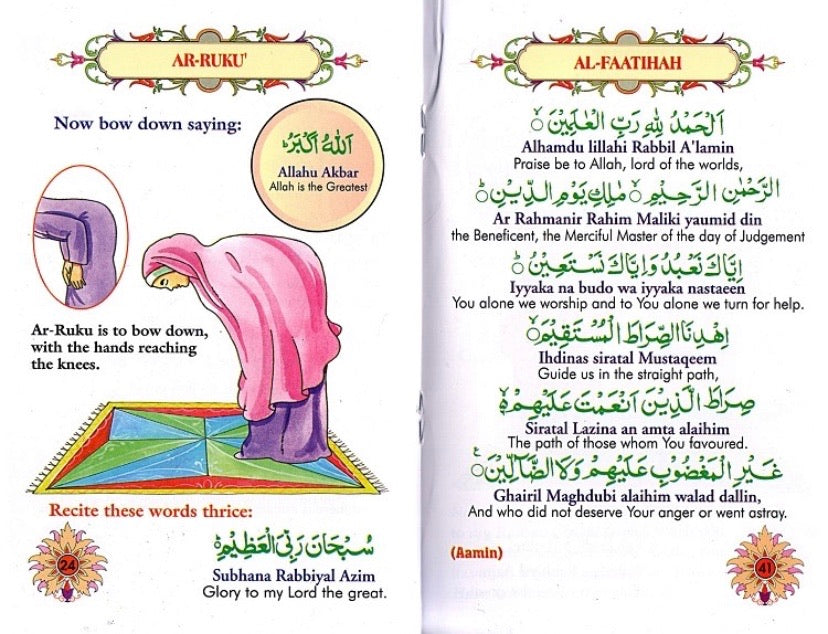 AR-RUKU'
Now bow down saying:
اَللّٰهُ اَكْبَرُ
Allahu Akbar
Allah is the Greatest
Ar-Ruku is to bow down,
with the hands reaching
the knees.
Recite these words thrice:
سُبْحَانَ رَبِّيَ الْعَظِيْمِ
Subhana Rabbiyal Azim
Glory to my Lord the great.
24
AL-FAATIHAH
اَلْحَمْدُ لِلّٰهِ رَبِّ الْعٰلَمِيْنَ
Alhamdu lillahi Rabbil A'lamin
Praise be to Allah, lord of the worlds,
الرَّحْمٰنِ الرَّحِيْمِ مٰلِكِ يَوْمِ الدِّيْنِ
Ar Rahmanir Rahim Maliki yaumid din
the Beneficent, the Merciful Master of the day of Judgement
اِيَّاكَ نَعْبُدُ وَاِيَّاكَ نَسْتَعِيْنُ
Iyyaka na budo wa iyyaka nastaeen
You alone we worship and to You alone we turn for help.
اِهْدِنَا الصِّرَاطَ الْمُسْتَقِيْمَ
Ihdinas siratal Mustaqeem
Guide us in the straight path,
صِرَاطَ الَّذِيْنَ اَنْعَمْتَ عَلَيْهِمْ
Siratal Lazina an amta alaihim
The path of those whom You favoured.
غَيْرِ الْمَغْضُوْبِ عَلَيْهِمْ وَلَا الضَّآلِّيْنَ
Ghairil Maghdubi alaihim walad dallin,
And who did not deserve Your anger or went astray.
(Aamin)
41